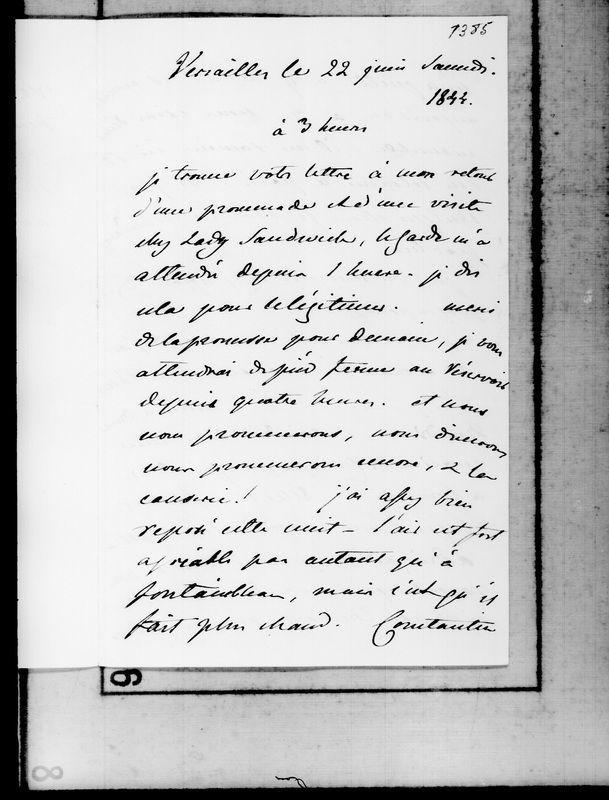 1385
Versailles le 22 juin Samedi.
1844.
à 3 heures
je trouve votre lettre à mon retour
d'une promenade et d'une visite
chez Lady Sandwich, le garde m'a
attendu depuis 1 heure. je dis
cela pour le légitimer. merci
de la promesse pour demain, je vous
attendrai de pied ferme au Réservoir
depuis quatre heures. et nous
nous promenerons, nous dinerons
nous promenerons encore, & la
causerie! j'ai assez bien
reposé cette nuit - l'air est fort
agréable pas autant qu'à
fontainbleau, mais c'est qu'il
fait plus chaud. Constantin
6
8